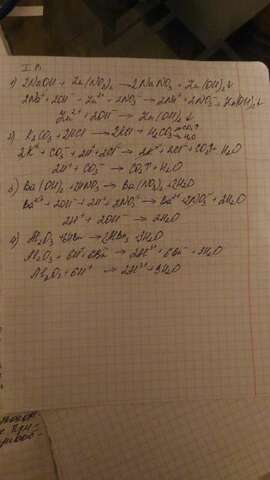 I В.
1) 2NaOH + Zn(NO₃)₂ → 2NaNO₃ + Zn(OH)₂↓
2Na⁺ + 2OH⁻ + Zn²⁺ + 2NO₃⁻ → 2Na⁺ + 2NO₃⁻ + Zn(OH)₂↓
Zn²⁺ + 2OH⁻ → Zn(OH)₂↓
2) K₂CO₃ + 2HCl → 2KCl + H₂CO₃ CO₂↑ H₂O
2K⁺ + CO₃²⁻ + 2H⁺ + 2Cl⁻ → 2K⁺ + 2Cl⁻ + CO₂↑ + H₂O
2H⁺ + CO₃²⁻ → CO₂↑ + H₂O
3) Ba(OH)₂ + 2HNO₃ → Ba(NO₃)₂ + 2H₂O
Ba²⁺ + 2OH⁻ + 2H⁺ + 2NO₃⁻ → Ba²⁺ + 2NO₃⁻ + 2H₂O
2H⁺ + 2OH⁻ → 2H₂O
4) Al₂O₃ + 6HBr → 2AlBr₃ + 3H₂O
Al₂O₃ + 6H⁺ + 6Br⁻ → 2Al³⁺ + 6Br⁻ + 3H₂O
Al₂O₃ + 6H⁺ → 2Al³⁺ + 3H₂O